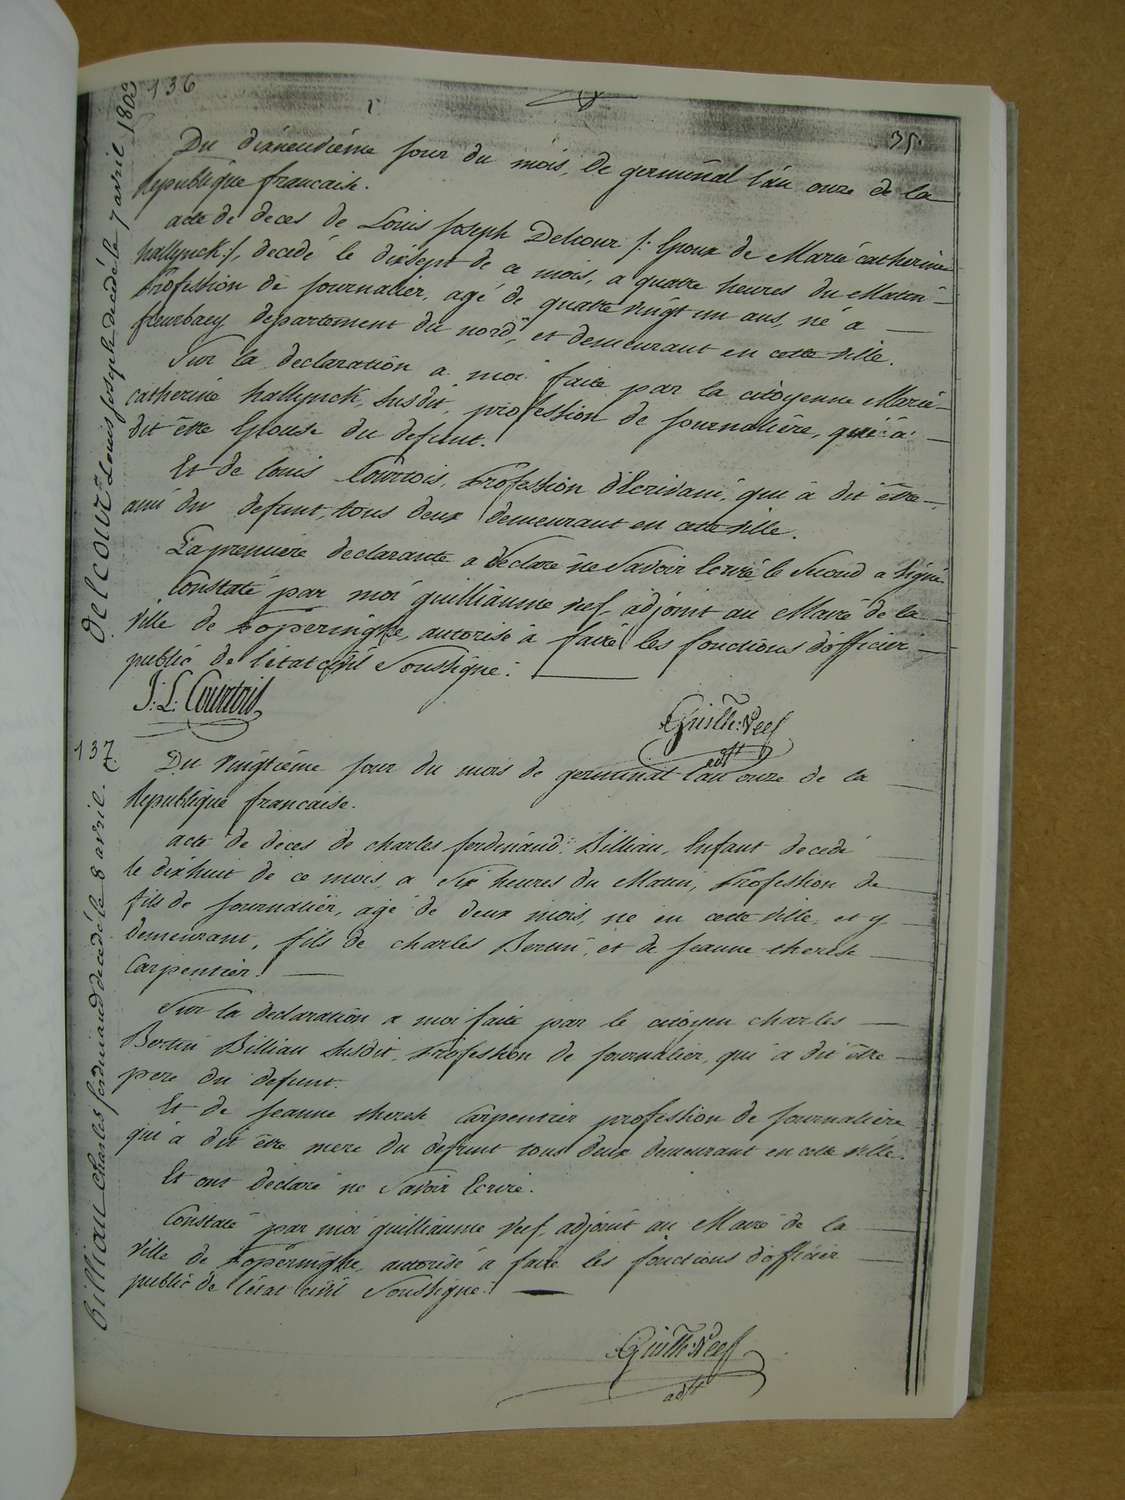 136
35.
Du dixneuvième jour du mois de germinal l'an onze de la
Republique francaise.
acte de deces de Louis Joseph Delcour /: Epoux de Marie catherine
hallynck :/, decedé le dixsept de ce mois, a quatre heures du Matin
Profession de journalier, agé de quatre vingt un ans, né a
fleurbaey departement du nord, et demeurant en cette ville.
Sur la declaration a moi faite par la citoyenne Marie
catherine hallynck susdit, profession de journalière, qui a
dit être Epouse du defunt.
Et de Louis Courtois, Profession d'Ecrivain, qui à dit être
ami du defunt, tous deux demeurant en cette ville.
La premiere declarante a declaré ne Savoir Ecrire le Second a signé
Constaté par moi guilliaume Nef adjoint au Maire de la
ville de Poperinghe, autorisé à faire les fonctions d'officier
public de l'état civil Soussigné.
J: L: Courtois
Guilh: Neef
adjt
delcour Louis joseph decedé le 7 avril 1803
137.
Du vingtième jour du mois de germinal l'an onze de la
Republique francaise.
acte de deces de charles ferdinand Billiau, Enfant decedé
le dixhuit de ce mois, a Six heures du Matin, Profession de
fils de journalier, agé de deux mois, né en cette ville, et y
demeurant, fils de charles Bertin, et de jeanne therese
Carpentier.
Sur la declaration a moi faite par le citoyen charles
Bertin Billiau susdit, Profession de journalier, qui a dit être
pere du defunt.
Et de jeanne therese Carpentier profession de journalière
qui à dit être mere du defunt tous deux demeurant en cette ville.
Et ont declaré ne Savoir Ecrire.
Constaté par moi guilliaume Nef adjoint au Maire de la
ville de Poperinghe, autorisé a faire les fonctions d'officier
public de l'état civil Soussigné.
Guilh: Neef
adjt
billiau charles ferdinand decedé le 8 avril.